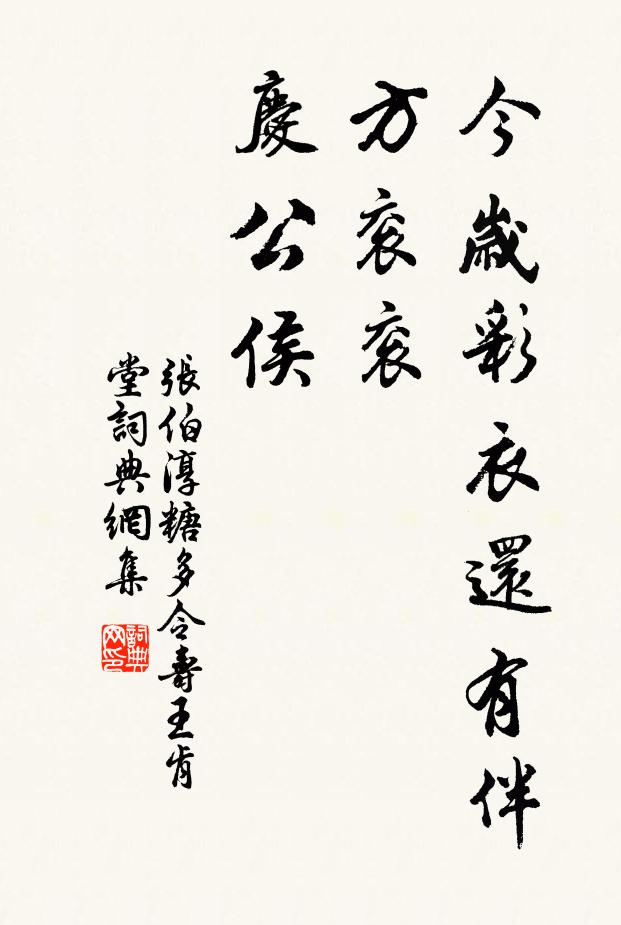 今歲彩衣還有伴
方衮衮
慶公侯
張伯淳糖多令壽王肯
堂詞典網集
詞典
网印